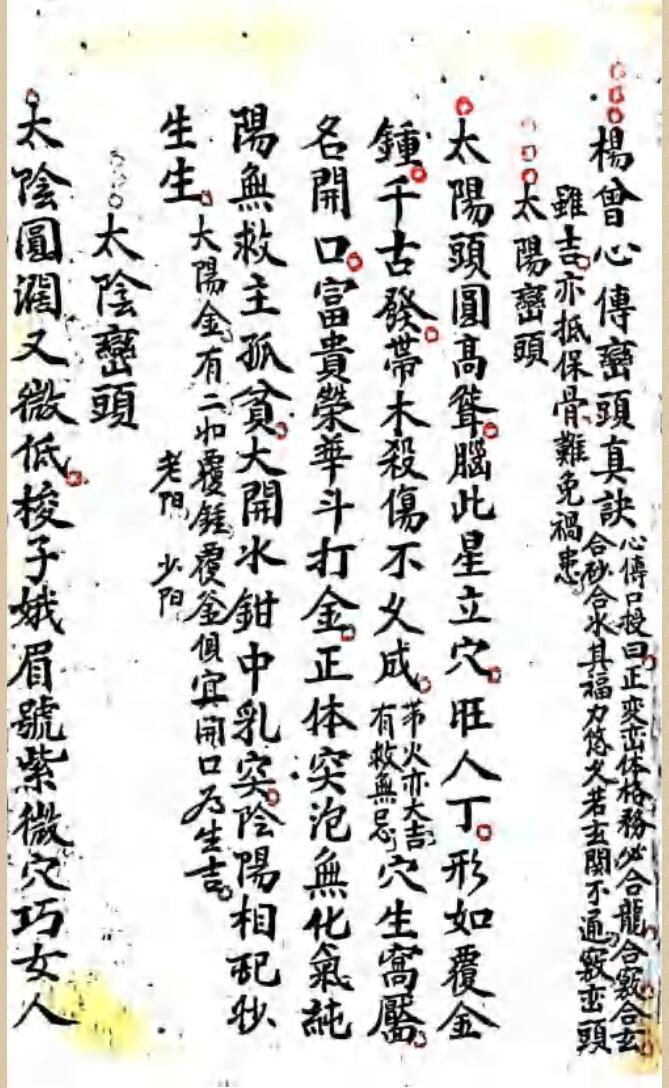 楊曾心傳巒頭真訣
心傳口授曰正变峦体格務必合龍合竅合玄
合砂合水其福力悠久若玄關不通竅峦頭
雖吉亦抵保骨難免禍患
太陽巒頭
太陽頭圓高聳腦此星立穴旺人丁形如覆金
鍾千古發帶木殺傷不乆成
帶火亦大吉
有救無忌
穴生窩靨
名開口富貴榮華斗打金正体突泡無化氣純
陽無救主孤貧大開水鉗中乳突陰陽相配妙
生生
大陽金有二如覆鍾覆釜俱宜開口为生吉
老阳 少阳
太陰巒頭
太陰圓濶又微低梭子娥眉號紫微穴巧女人